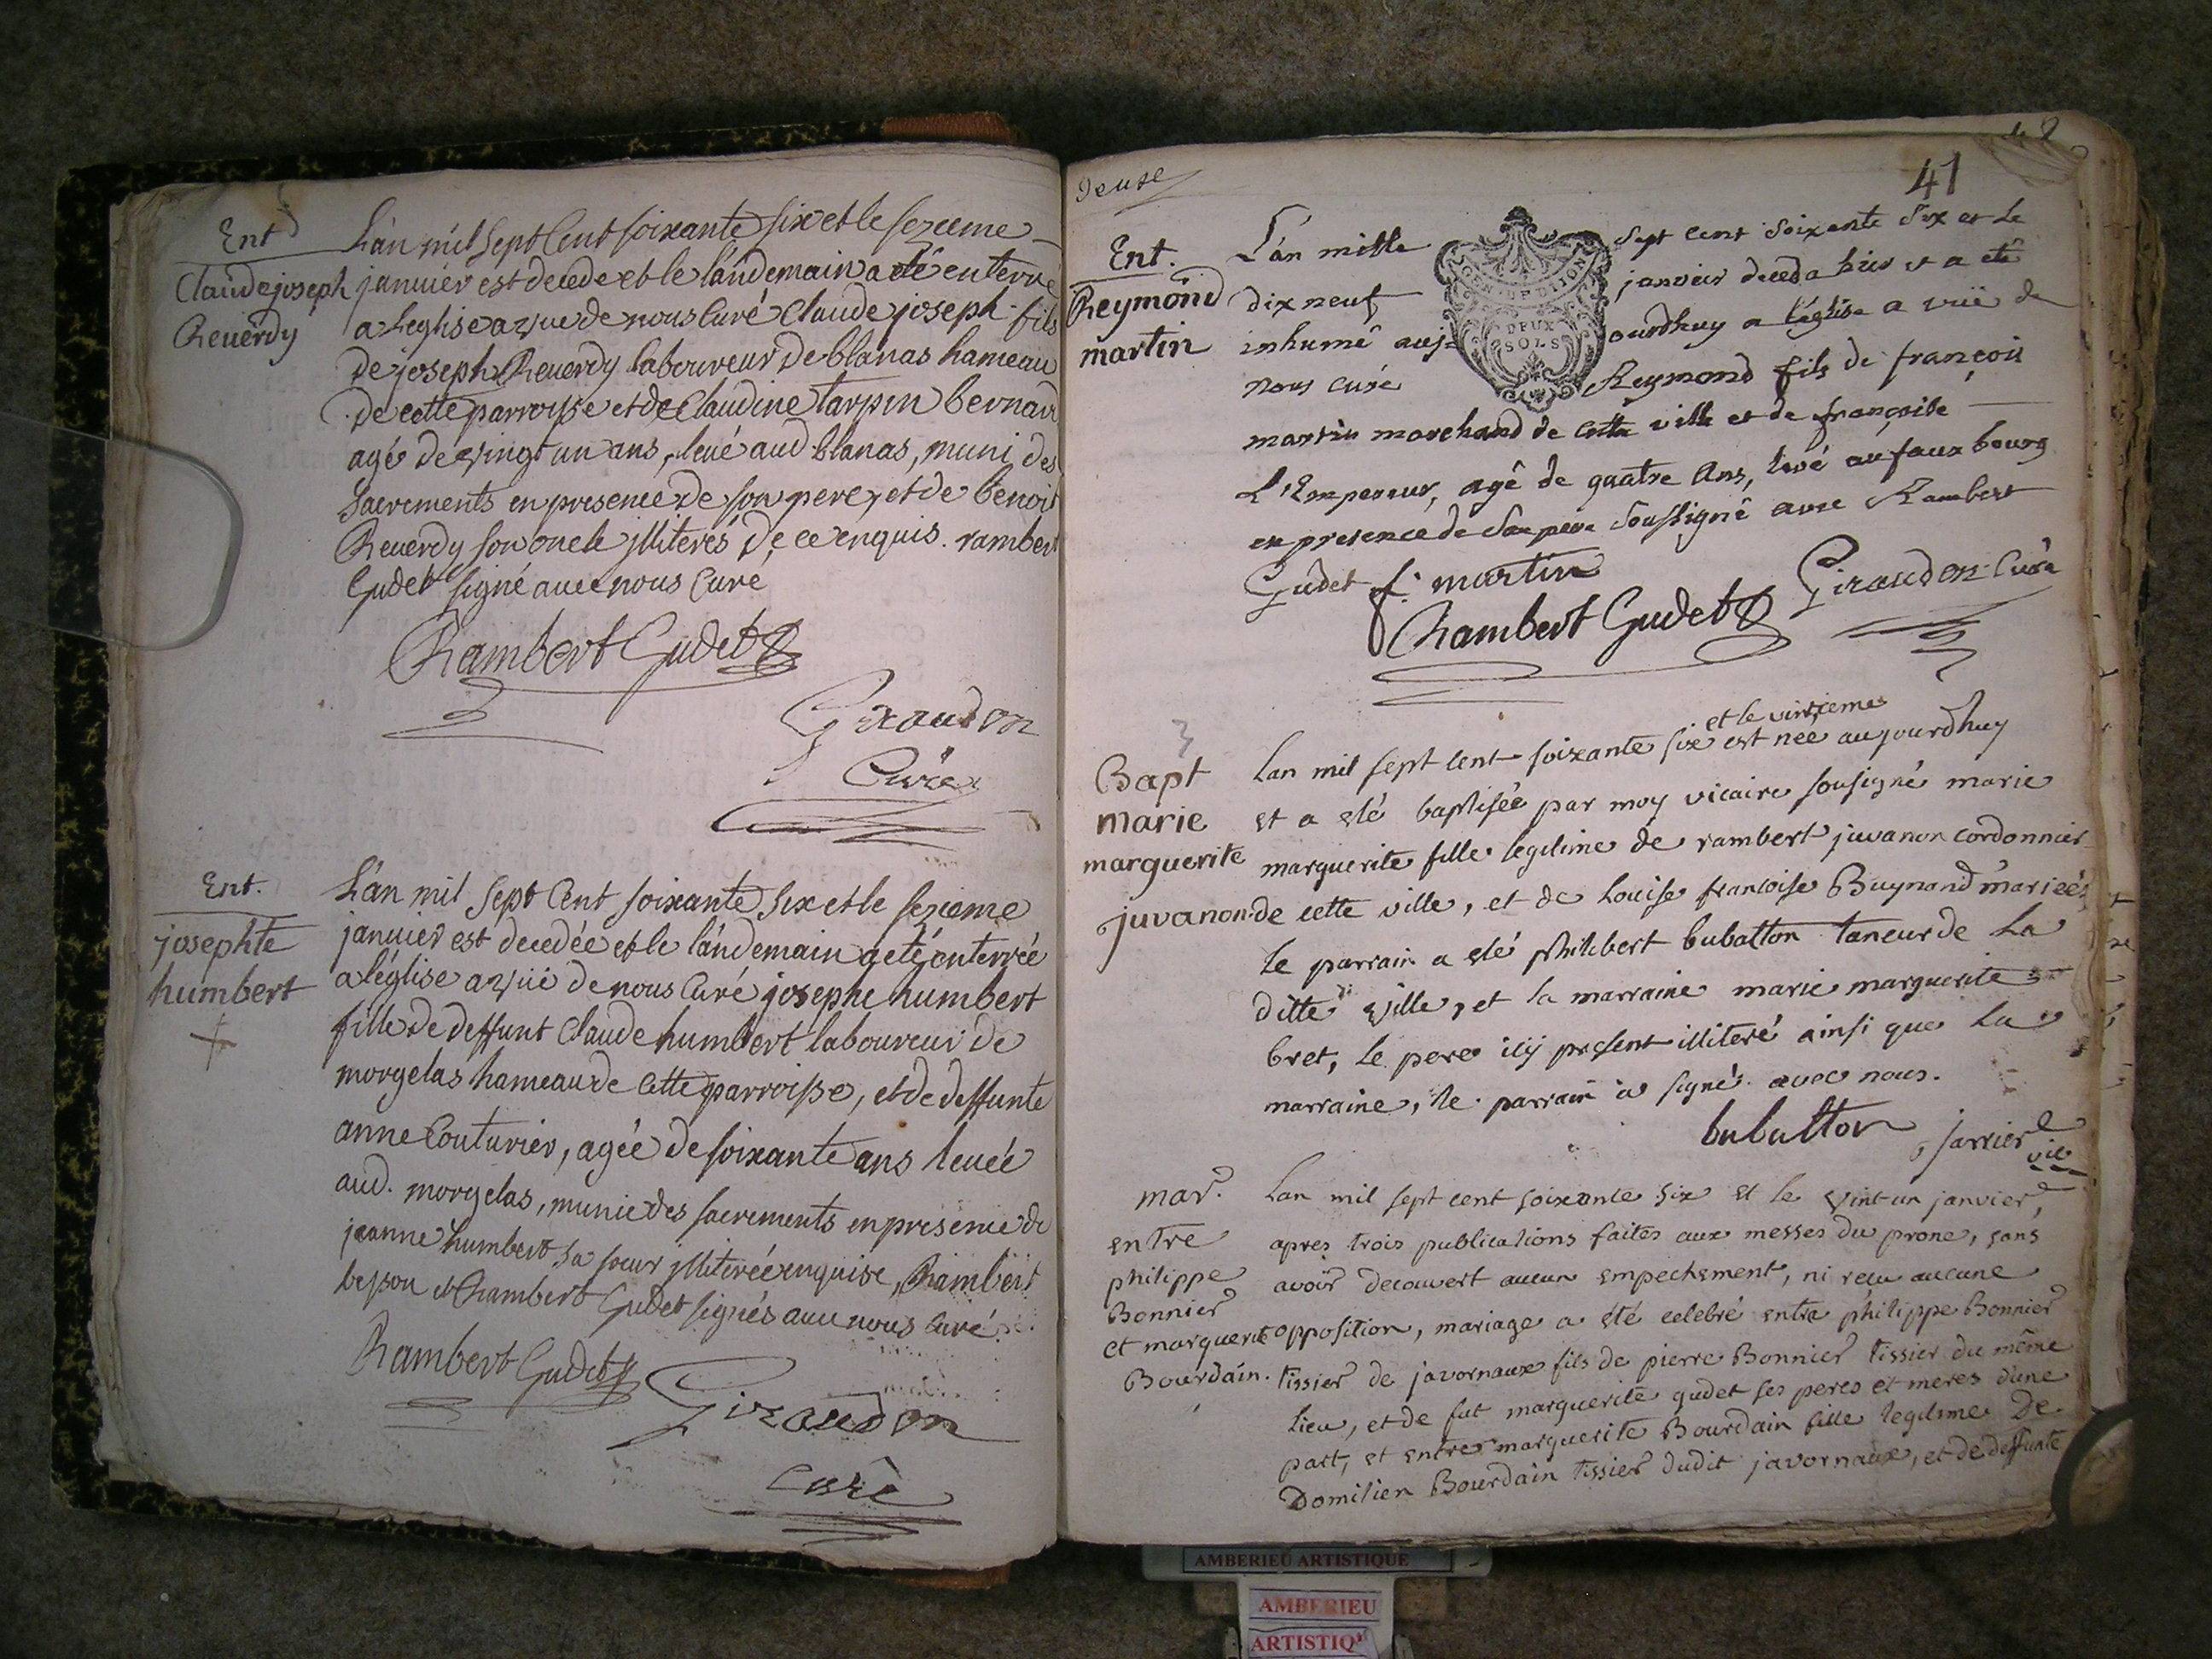 Ent
Claude joseph
Reuerdy
L'an mil Sept Cent soixante six et le sezieme
januier est decedé et le landemain a eté enterré
a leglise a vue de nous Curé Claude joseph fils
de joseph Reuerdy laboureur de blanas hameau
de cette parroisse et de Claudine tarpin bernard
agé de vingt un ans, leué aud. blanas, muni des
Sacrements en presence de son pere, et de benoit
Reuerdy son oncle jlliterés de ce enquis. rambert
Gudet signé auec nous Curé
Rambert Gudet
Giraudon
Curé
Ent.
josephte
humbert
L'an mil Sept Cent soixante six et le sezieme
januier est decedée et le landemain a eté enterrée
a l'église a vüe de nous Curé josephe humbert
fille de deffunt Claude humbert laboureur de
morgelas hameau de cette parroisse, et de deffunte
anne Couturier, agée de soixante ans leuée
aud. morgelas, munie des sacrements en presence de
jeanne humbert sa soeur jlliterée enquise, Rambert
besson et Rambert Gudet signés auec nous Curé.
Rambert Gudet
Giraudon
Curé
deuse
42
41
Ent.
Reymond
martin
L'an mille sept cent soixante six et le
dix neuf janvier deceda hier et a eté
inhumé aujourdhuy a l'église a vüe de
nous curé Reymond fils de françois
martin marchand de cette ville et de françoise
L'Empereur, agé de quatre ans, levé au faux bourg
en presence de Son pere Soussigné avec Rambert
Gudet
f. martin
GEN. DE DIJON
DEUX
SOLS
Rambert Gudet
Giraudon Curé
3
Bapt
marie
marguerite
juvanon
et le vintieme
Lan mil sept cent soixante six est née aujourdhuy
et a eté baptisée par moy vicaire sousigné marie
marguerite fille legitime de rambert juvanon cordonnier
de cette ville, et de Louise francoise Buynand mariés,
le parrain a eté philibert bubatton taneur de La
ditte ville, et la marraine marie marguerite
bret, le pere icy present illiteré ainsi que La
marraine, le parrain a signé avec nous.
bubatton
Jarrier vic
mar.
entre
philippe
Bonnier
et marguerite
Bourdain.
Lan mil sept cent soixante six et le vint un janvier,
apres trois publications faites aux messes du prone, sans
avoir decouvert aucun empechement, ni recu aucune
opposition, mariage a été celebré entre philippe Bonnier
tissier de javornaux fils de pierre Bonnier tissier du même
lieu, et de fut marguerite gudet ses peres et meres d'une
part, et entre marguerite Bourdain fille legitime De
Domitien Bourdain tissier dudit javornaux, et de deffunte
AMBERIEU ARTISTIQUE
AMBERIEU
ARTISTIQ